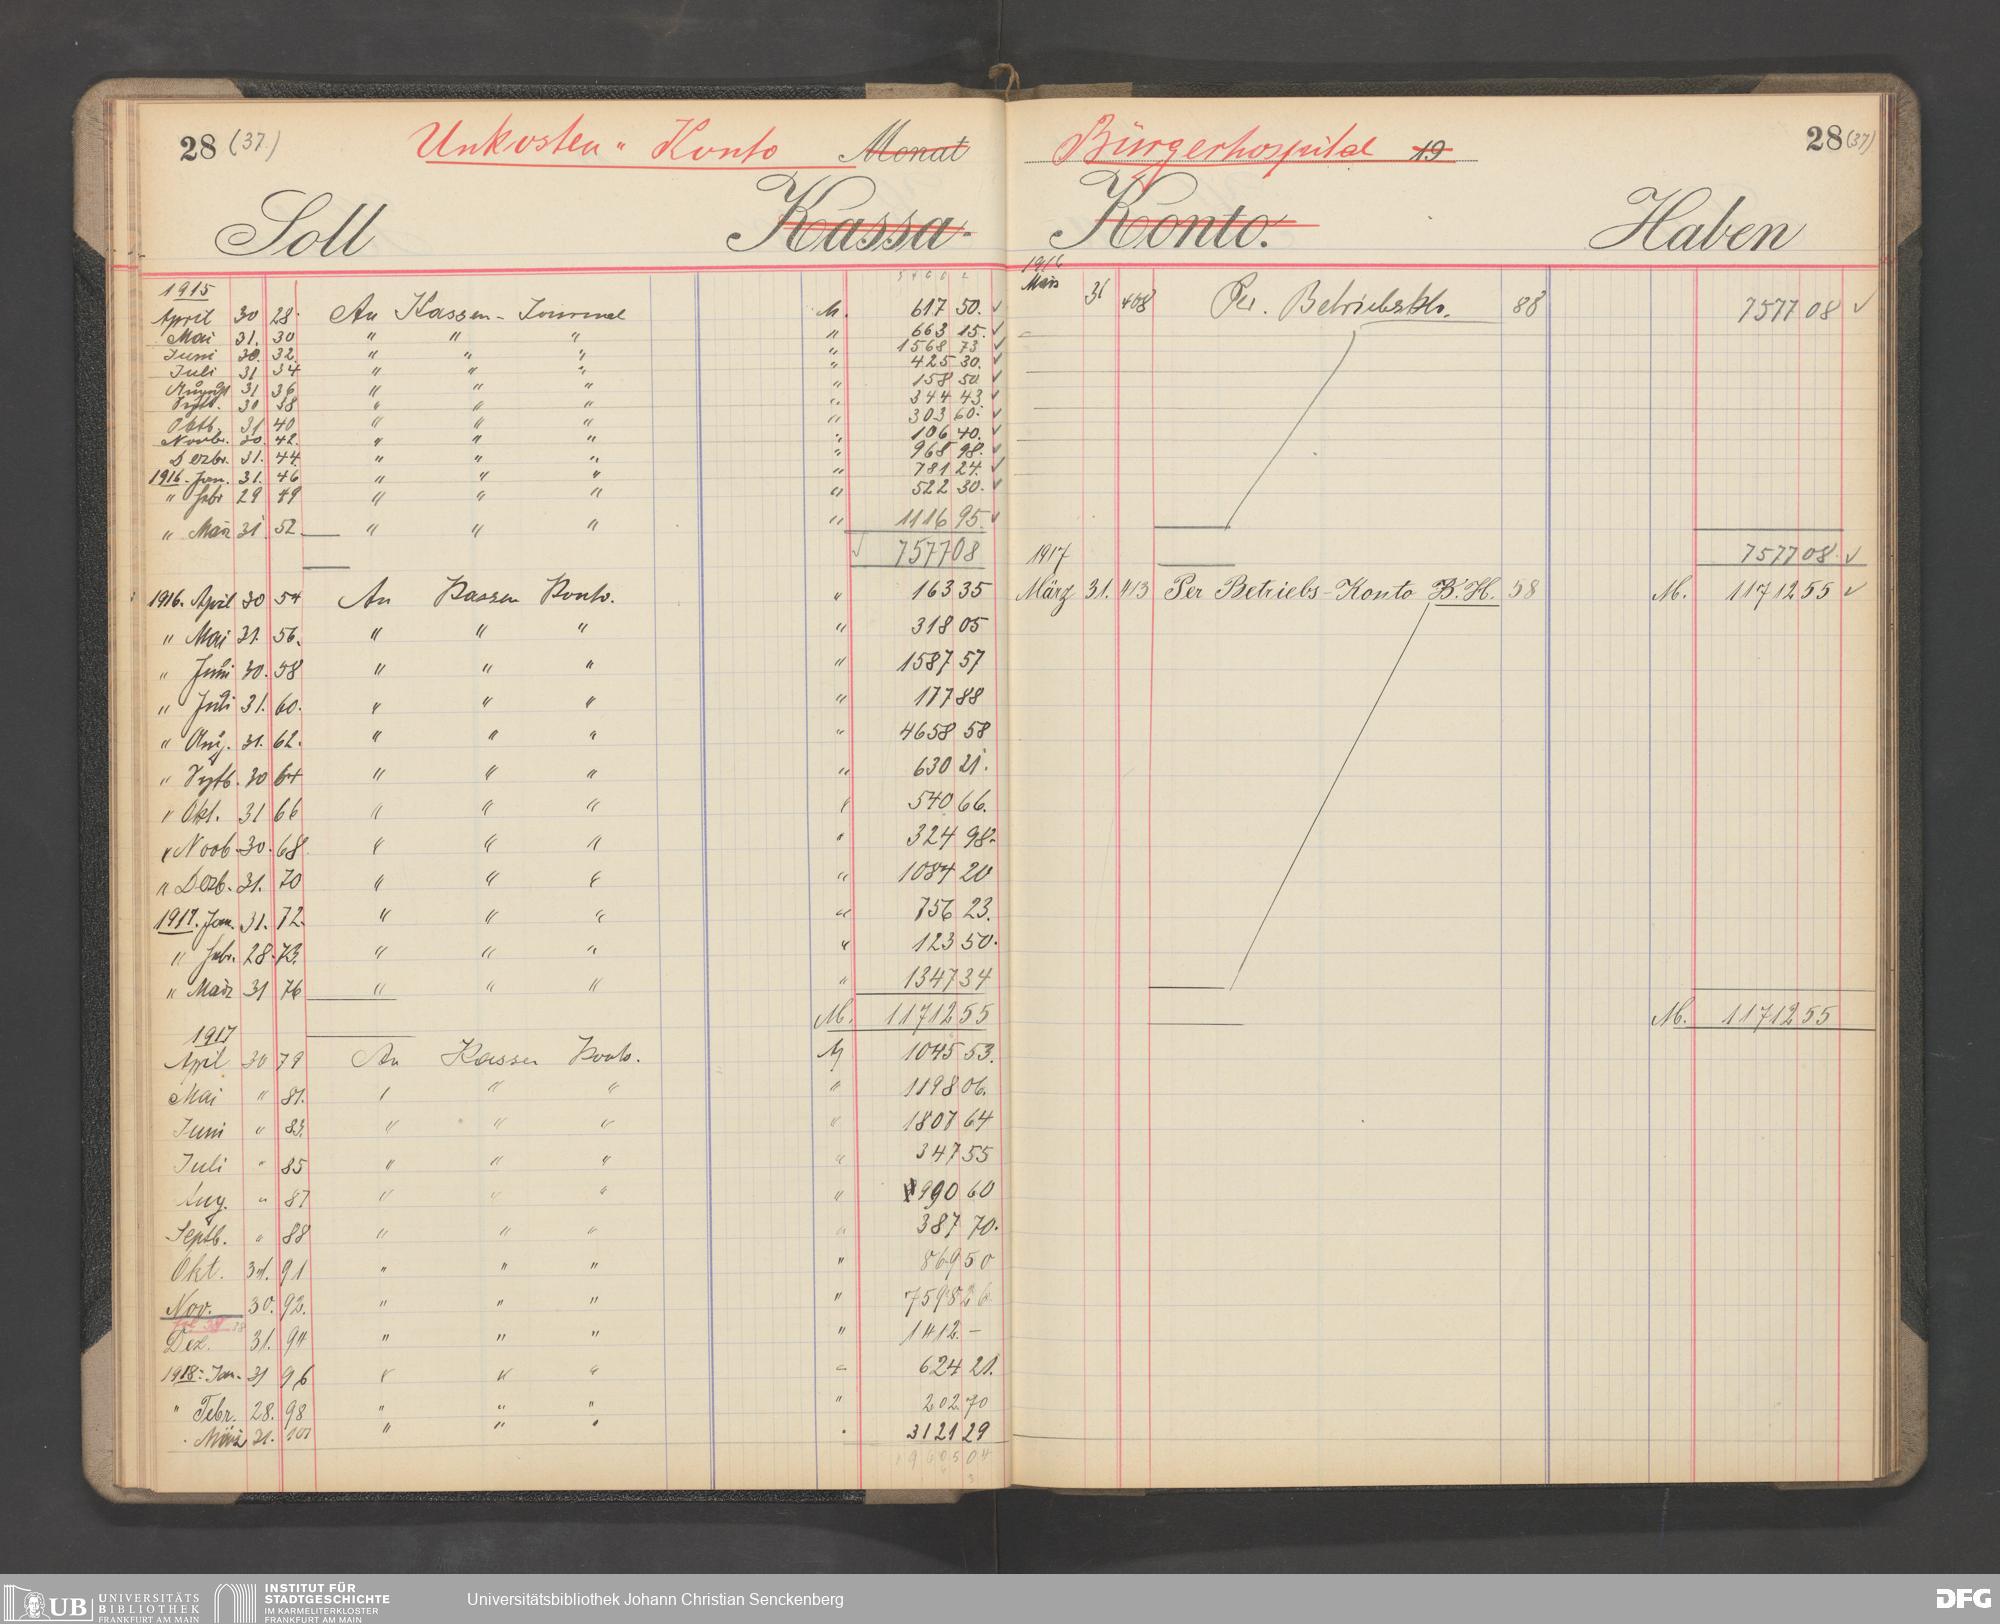 28 (37.)
Unkosten-Konto Monat
Soll Kassa-
1915
April 30 28. An Kassen-Journal M. 617 50. ✓
Mai 31. 30 " " " " 663 15. ✓
Juni 30. 32. " " " " 1568 73 ✓
Juli 31 34 " " " " 425 30. ✓
August 31 36 " " " " 158 50 ✓
Septb. 30 38 " " " " 344 43 ✓
Oktb. 31 40 " " " " 303 60. ✓
Novbr. 30. 42. " " " " 106 40. ✓
Dezbr. 31. 44. " " " " 968 98. ✓
1916. Jan. 31. 46 " " " " 781 24. ✓
" Febr 29 49 " " " " 522 30. ✓
" März 31. 52 " " " " 1116 95. ✓
✓ 7577 08
1916. April 30 54 An Kassen Konto. " 163 35
" Mai 31. 56. " " " " 318 05
" Juni 30. 58 " " " " 1587 57
" Juli 31. 60. " " " " 177 88
" Aug. 31. 62. " " " " 4658 58
" Septb. 30 64 " " " " 630 21.
" Okt. 31 66 " " " " 540 66.
" Novb. 30. 68. " " " " 324 98.
" Dezb. 31. 70 " " " " 1084 20
1917. Jan. 31. 72. " " " " 756 23.
" Febr. 28. 73. " " " " 123 50.
" März 31 76 " " " " 1347 34
M. 11712 55
1917
April 30 79 An Kassen Konto. M 1045 53.
Mai " 81. " " " " 1198 06.
Juni " 83. " " " " 1807 64
Juli " 85 " " " " 347 55
Aug. " 87 " " " " 990 60
Septb. " 88 " " " " 387 70.
Okt. 31. 91 " " " " 869 50
Nov. 30. 92. " " " " 7598 26
Dez. 31. 94 " " " " 1412 –
1918: Jan. 31 96 " " " " 624 21.
" Febr. 28. 98 " " " " 202 70
" März 31. " " " " 3121 29
Bürgerhospital 19
28 (37)
Konto. Haben
1916
März 31 408 Per. Betriebskto. 88 7577 08 ✓
7577 08. ✓
1917
März 31. 413 Per Betriebs-Konto B.H. 58 M. 11712 55 ✓
M. 11712 55
UB UNIVERSITÄTS
BIBLIOTHEK
FRANKFURT AM MAIN
INSTITUT FÜR
STADTGESCHICHTE
IM KARMELITERKLOSTER
FRANKFURT AM MAIN
Universitätsbibliothek Johann Christian Senckenberg
DFG